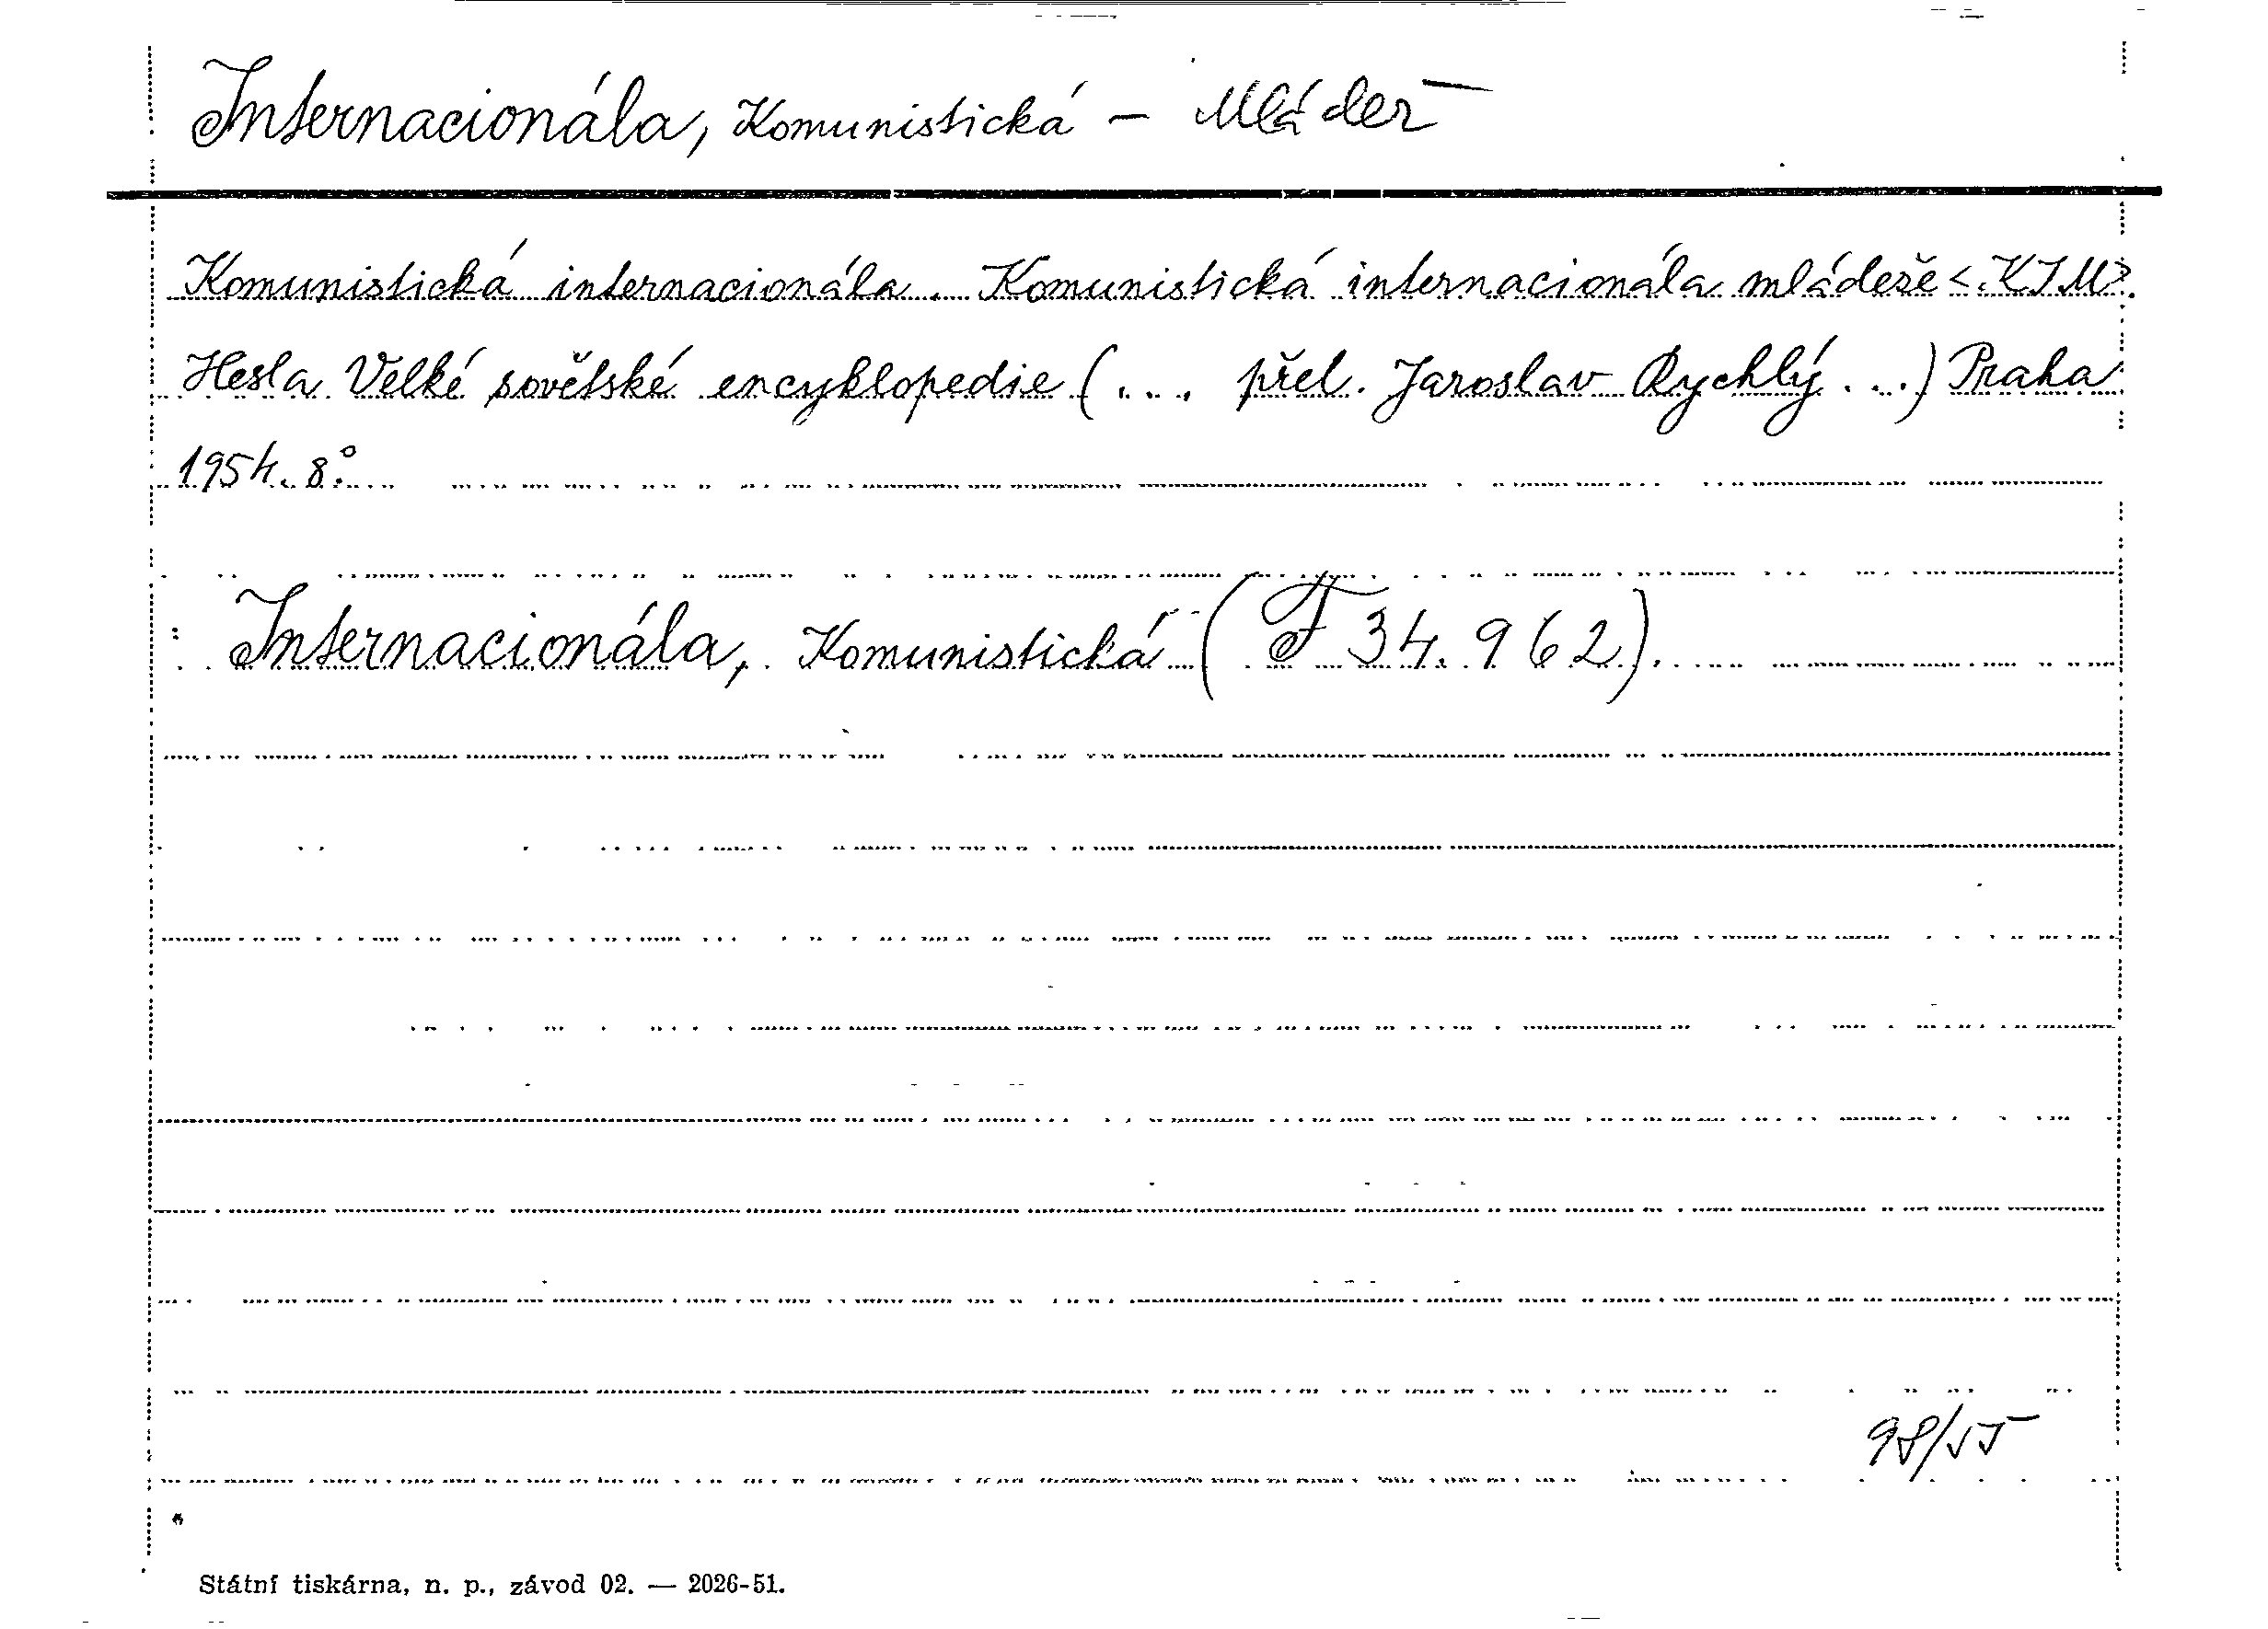 Internacionála, Komunistická - Mládež
Komunistická internacionála. Komunistická internacionála mládeže <KIM>.
Hesla Velké sovětské encyklopedie (... přel. Jaroslav Rychlý ...) Praha
1954. 8°.
: Internacionála, Komunistická (F 34.962).
98/55
Státní tiskárna, n. p., závod 02. — 2026-51.